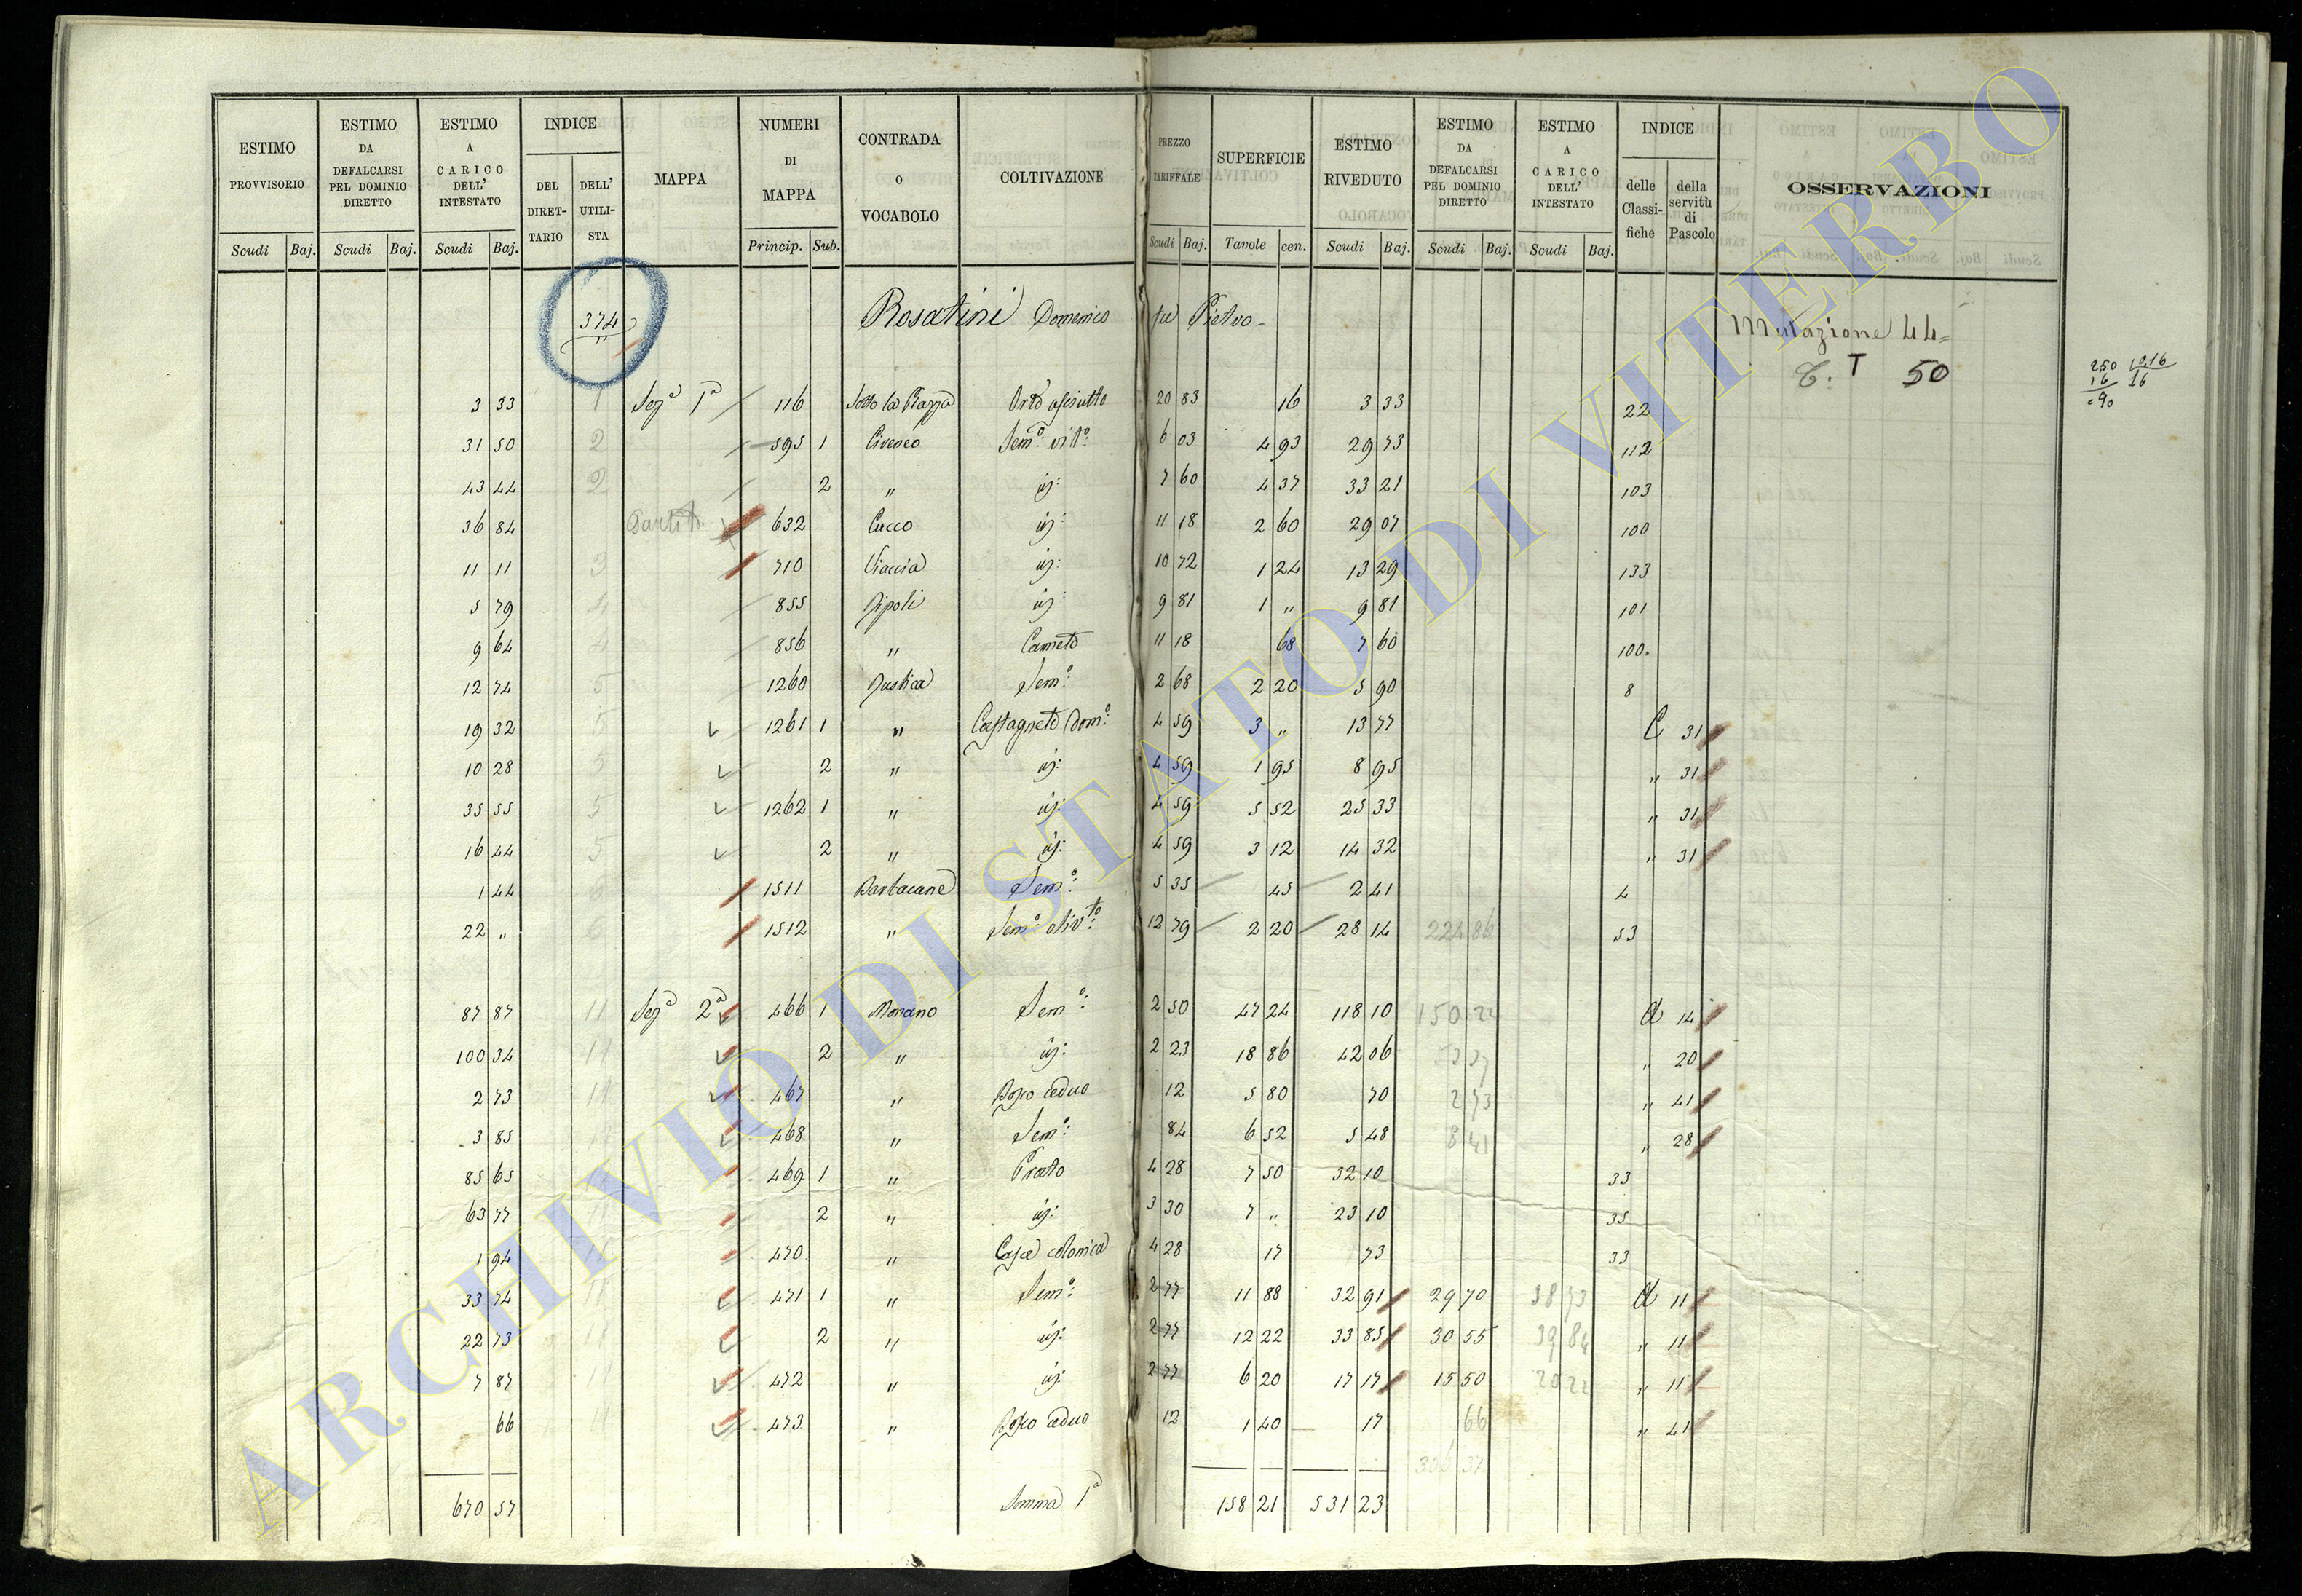 ESTIMO PROVVISORIO
Scudi Baj.
ESTIMO DA DEFALCARSI PEL DOMINIO DIRETTO
Scudi Baj.
ESTIMO A CARICO DELL' INTESTATO
Scudi Baj.
INDICE
DEL DIRET- TARIO
DELL' UTILI- STA
MAPPA
NUMERI DI MAPPA
Princip. Sub.
CONTRADA O VOCABOLO
COLTIVAZIONE
PREZZO TARIFFALE
Scudi Baj.
SUPERFICIE
Tavole cen.
ESTIMO RIVEDUTO
Scudi Baj.
ESTIMO DA DEFALCARSI PEL DOMINIO DIRETTO
Scudi Baj.
ESTIMO A CARICO DELL' INTESTATO
Scudi Baj.
INDICE
delle Classi- fiche
della servitù di Pascolo
OSSERVAZIONI
374 Rosatini Domenico fu Pietro
Mutazione 44
C. T 50
250 10,16
16 16
3 33 1 Sezª 1ª 116 Sotto la Piazza Orto asciutto 20 83 16 3 33 22
31 50 2 595 1 Semº vitº 6 03 4 93 29 73 112
43 44 2 2 " id: 7 60 4 37 33 21 103
36 84 632 Cucco id: 11 18 2 60 29 07 100
11 11 3 710 Viaccia id: 10 72 1 24 13 29 133
5 79 4 855 Ripoli id: 9 81 1 " 9 81 101
9 64 4 856 " Canneto 11 18 68 7 60 100
12 74 5 1260 Rustica Semº 2 68 2 20 5 90 8
19 32 5 1261 1 " Castagneto Domº 4 59 3 " 13 77 C 31
10 28 5 2 " id: 4 59 1 95 8 95 " 31
35 55 5 1262 1 " id: 4 59 5 52 25 33 " 31
16 44 5 2 " id: 4 59 3 12 14 32 " 31
1 44 6 1511 Barbacane Semº 5 35 45 2 41 4
22 " 6 1512 " Semº olivtº 12 79 2 20 28 14 224 86 53
87 87 11 Sezª 2ª 466 1 Monano Semº 2 50 47 24 118 10 150 22 A 14
100 34 11 2 " id: 2 23 18 86 42 06 " 20
2 73 11 467 " Bosco ceduo 12 5 80 70 2 73 " 41
3 85 11 468 " Semº 84 6 52 5 48 " 28
85 65 11 469 1 " Prato 4 28 7 50 32 10 33
63 77 11 2 " id: 3 30 7 " 23 10 35
1 94 11 470 " Casa colonica 4 28 17 73 33
33 74 11 471 1 " Semº 2 77 11 88 32 91 29 70 38 73 A 11
22 73 11 2 " id: 2 77 12 22 33 85 30 55 39 84 " 11
7 87 11 472 " id: 2 77 6 20 17 17 15 50 20 22 " 11
66 11 473 " Bosco ceduo 12 1 40 17 66 " 41
306 37
670 57 Somma 1ª 158 21 531 23
ARCHIVIO DI STATO DI VITERBO